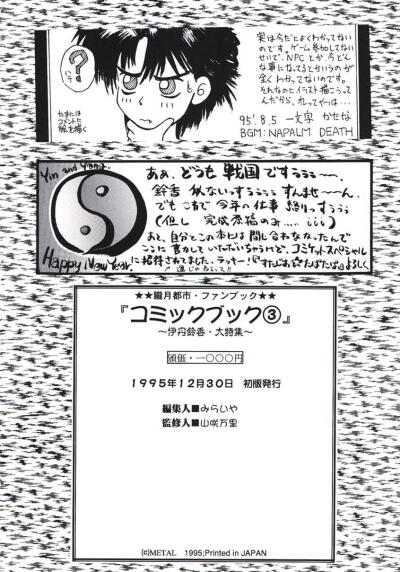 実は今だによくわかってない
のです。ゲーム参加してない
せいで、NPCとか、今どん
な事になってるとかいうのが
全くわかってないのです。
それなのにイラスト描こうって
んだから、れってやつは…
95'.8.5 一文字 かたな
BGM:NAPALM DEATH
?
たまには
コメントに
絵を描く
Yin and Yang.
ああ、どうも戦国ですぅぅぅー、
鈴香 似ないっすぅぅぅぅ すんませ〜〜ん、
でも これで 今年の仕事 終りっすぅぅぅ
(但し 完成原稿のみ…… ;;;)
あと、自分とこの本には間し合わなかったんで
ここに書かしていただいちゃうけど、コミケットスペシャル
に招待されました、ラッキー!『すたじお☆たぱたぱ』よろしく
Happy New Year.
★★朧月都市・ファンブック★★
『コミックブック③』
〜伊丹鈴香・大特集〜
頒価・一〇〇〇円
1995年12月30日 初版発行
編集人■みらいや
監修人■山咲万里
(c)METAL 1995;Printed in JAPAN
-66-